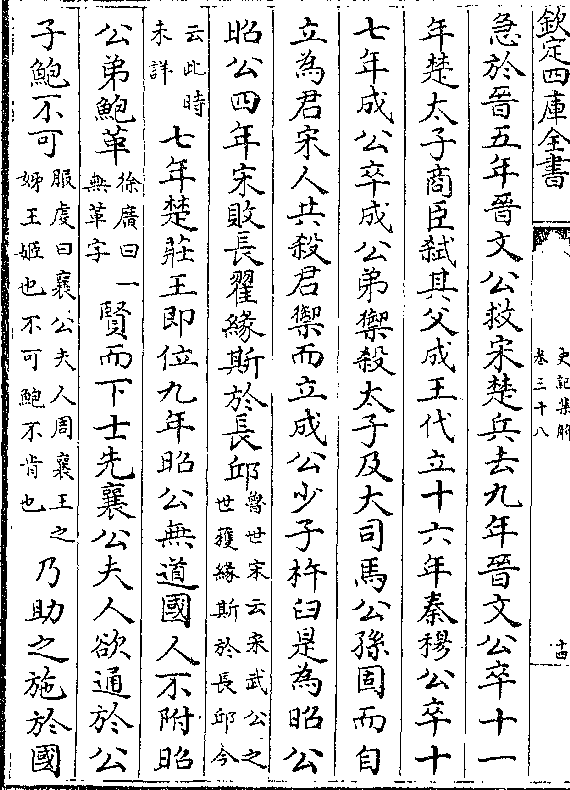 欽定四庫全書
史記集解
卷三十八
十四
急於晉五年晉文公救宋楚兵去九年晉文公卒十一
年楚太子商臣弑其父成王代立十六年秦穆公卒十
七年成公卒成公弟禦殺太子及大司馬公孫固而自
立為君宋人共殺君禦而立成公少子杵臼是為昭公
昭公四年宋敗長翟緣斯於長邱魯世家云宋武公之
世獲緣斯於長邱今
云此時
未詳七年楚莊王即位九年昭公無道國人不附昭
公弟鮑革徐廣曰
無革字一賢而下士先襄公夫人欲通於公
子鮑不可服虔曰襄公夫人周襄王之
姊王姬也不可鮑不肯也乃助之施於國